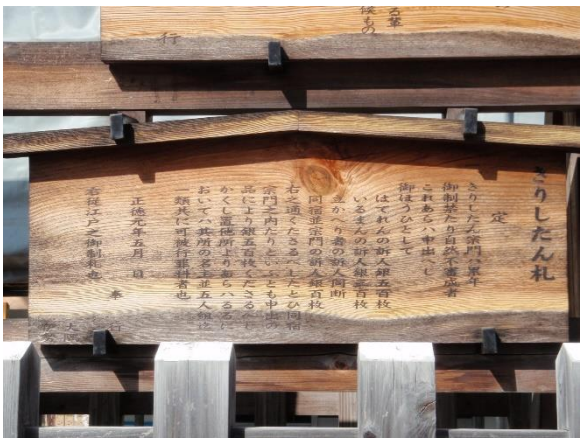 る輩
候もの
行
きりしたん札
定
きりしたん宗門ハ累年
御制禁たり自然不審成者
これあらハ申出へし
御ほうひとして
はてれんの訴人銀五百枚
いるまんの訴人銀三百枚
立かへり者の訴人同断
同宿並宗門の訴人銀百枚
右之通くたさるへしたとひ同宿
宗門之内たりといふとも申出る
品により銀五百枚くたさるへし
かくし置他所よりあらハるゝに
おいてハ其所の名主並五人組迄
一類共に可被行罪科者也
正徳元年五月 日
奉行
右従江戸之御制札也
大岡